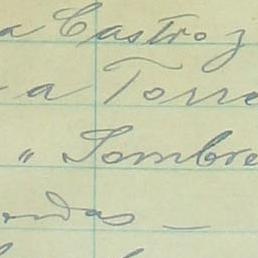 a Castro y
a Torre
" Sombre
ondas —